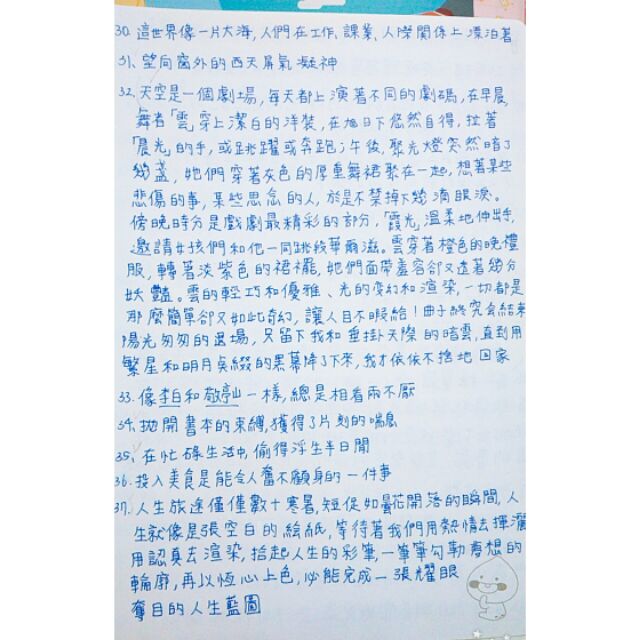 30. 這世界像一片大海,人們在工作、課業、人際關係上漂泊著
31. 望向窗外的西天屏氣凝神
32. 天空是一個劇場,每天都上演著不同的劇碼,在早晨,
舞者「雲」穿上潔白的洋裝,在旭日下悠然自得,拉著
「晨光」的手,或跳躍或奔跑;午後,聚光燈突然暗了
幾盞,她們穿著灰色的厚重舞裙聚在一起,想著某些
悲傷的事,某些思念的人,於是不禁掉下幾滴眼淚。
傍晚時分是戲劇最精彩的部分,「霞光」溫柔地伸出手,
邀請女孩們和他一同跳終華爾滋。雲穿著橙色的晚禮
服,轉著淡紫色的裙襬,她們面帶羞容卻又透著幾分
妖豔。雲的輕巧和優雅、光的變幻和渲染,一切都是
那麼簡單卻又如此奇幻,讓人目不暇給!曲子終究會結束
陽光匆匆的退場,只留下我和垂掛天際的暗雲,直到用
繁星和明月點綴的黑幕降了下來,我才依依不捨地回家
33. 像李白和敬亭山一樣,總是相看兩不厭
34. 拋開書本的束縛,獲得了片刻的喘息
35. 在忙碌生活中,偷得浮生半日閒
36. 投入美食是能令人奮不顧身的一件事
37. 人生旅途僅僅數十寒暑,短促如曇花開落的瞬間,人
生就像是張空白的繪紙,等待著我們用熱情去揮灑
用認真去渲染,拾起人生的彩筆,一筆筆勾勒夢想的
輪廓,再以恆心上色,必能完成一張耀眼
奪目的人生藍圖